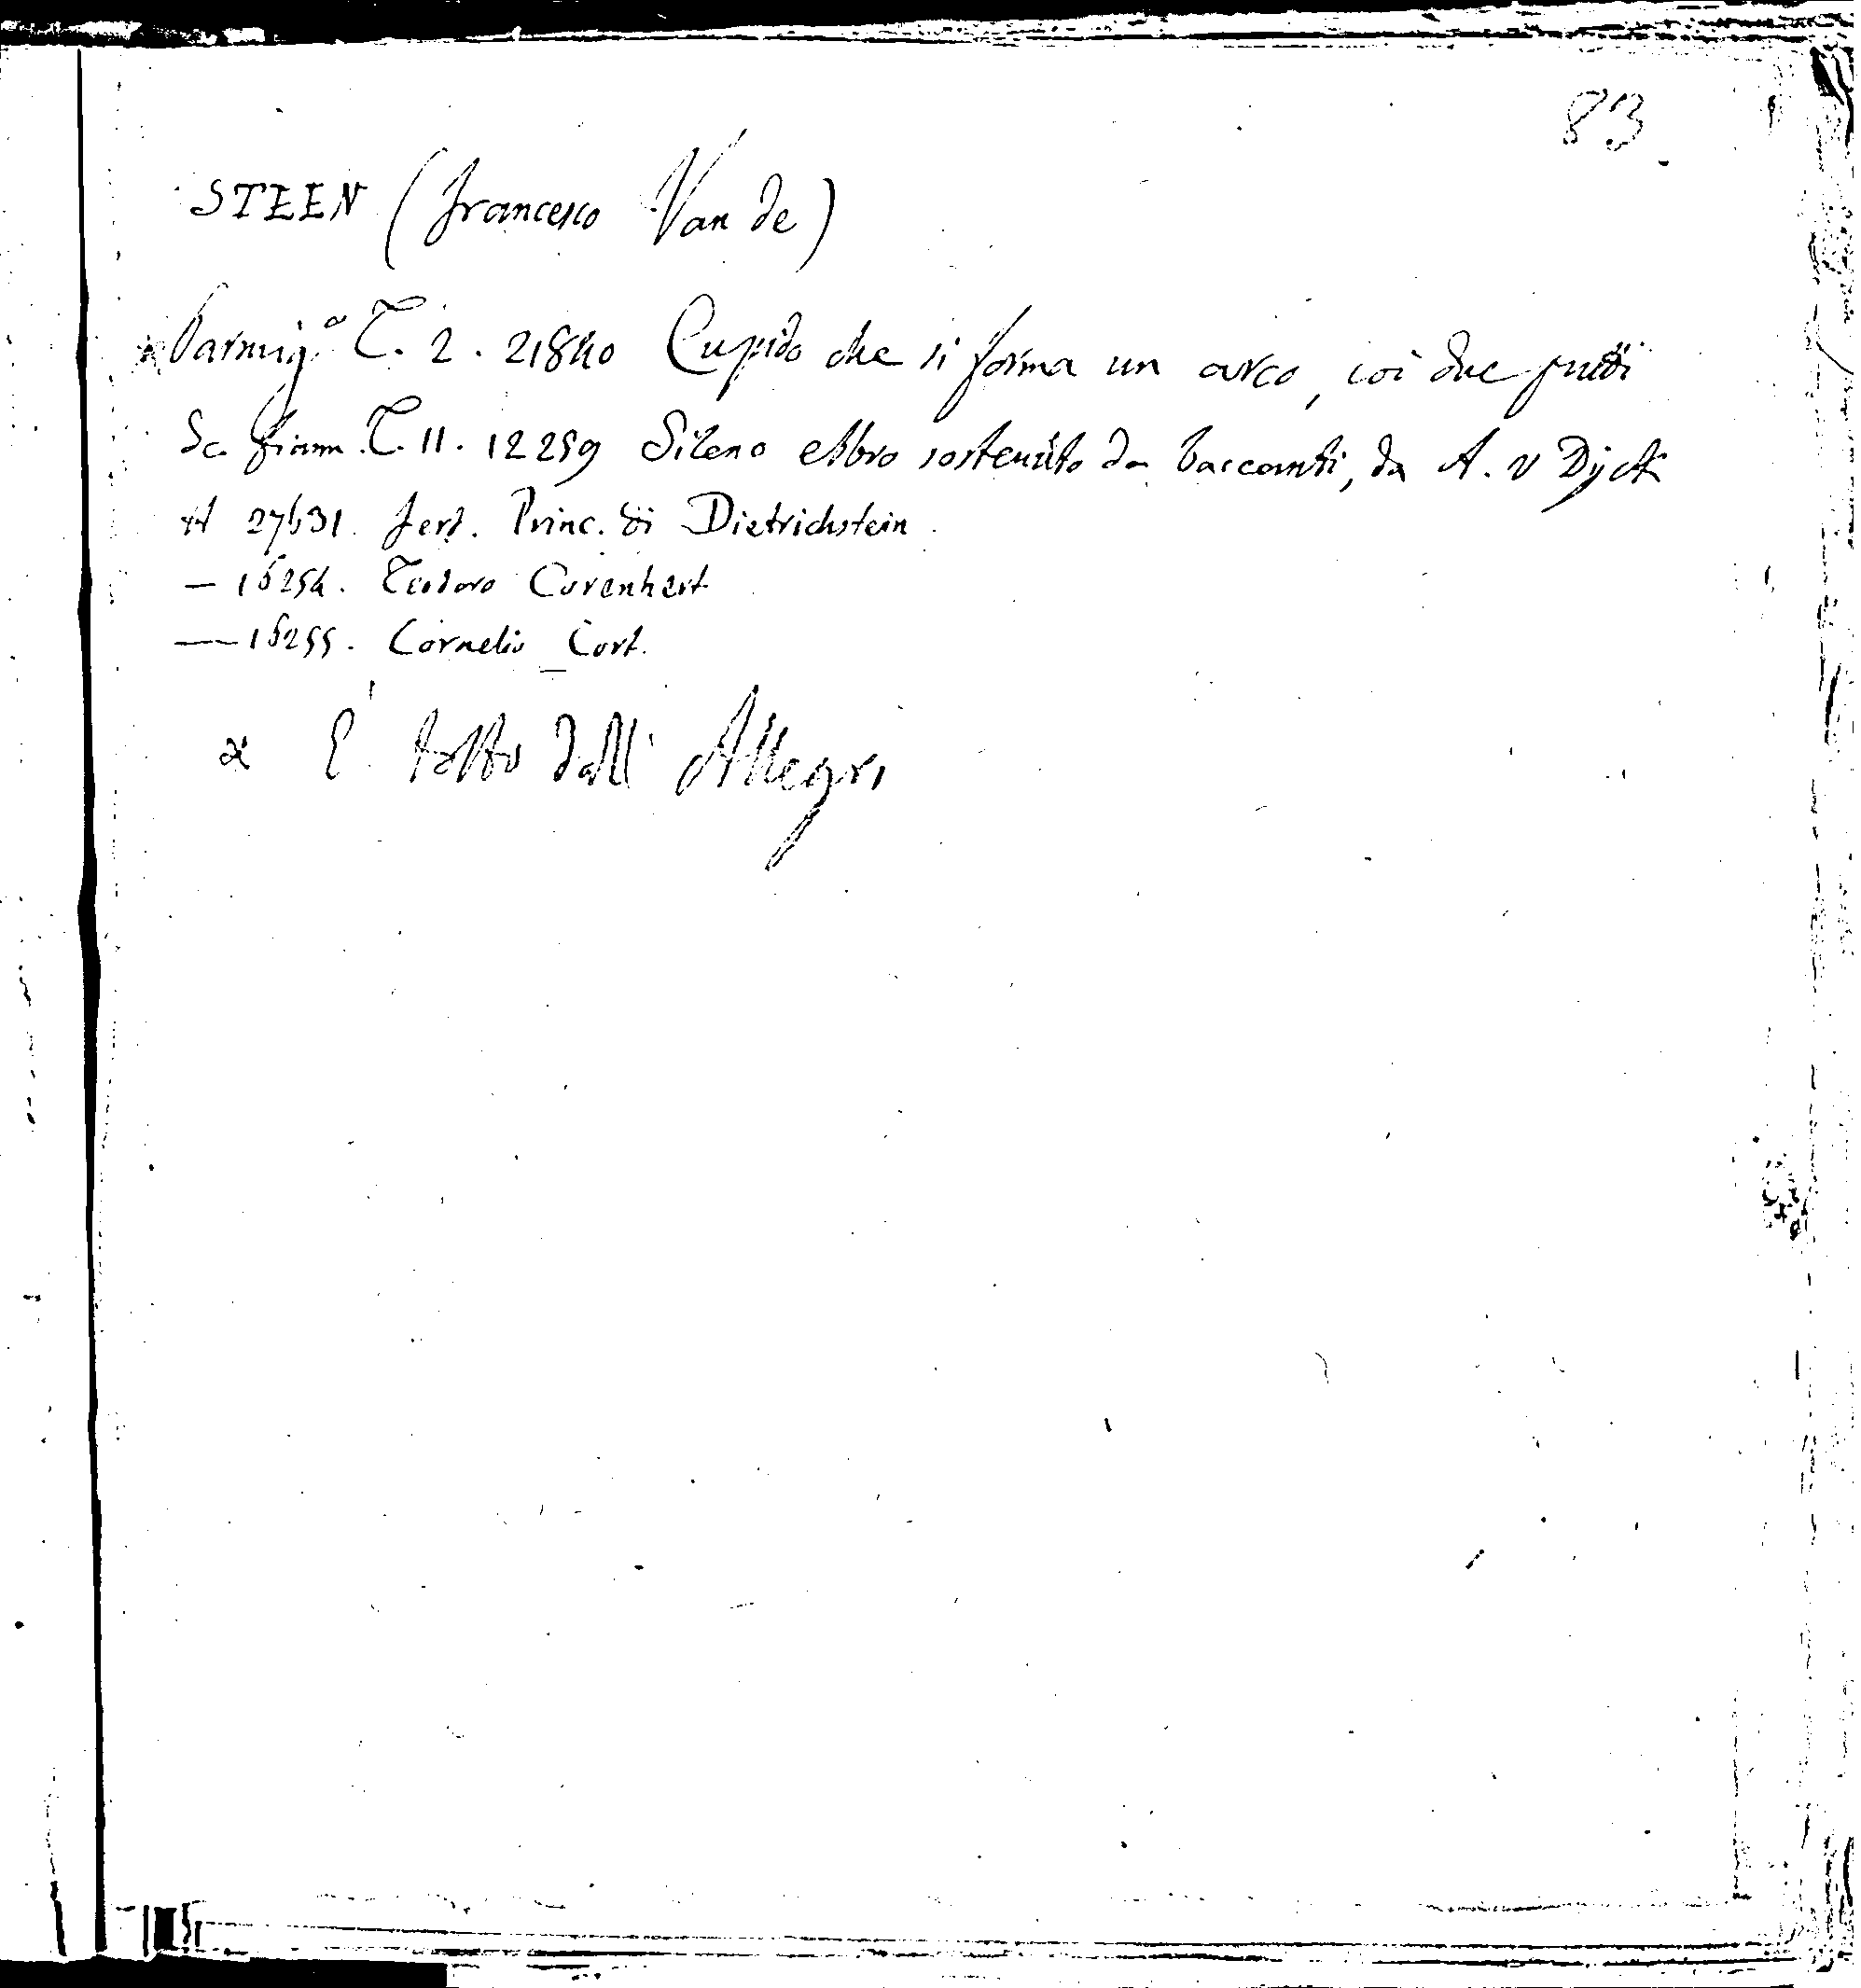 83.
STEEN (Francesco Van de)
* Parmig.º T. 2. 21840 Cupido che si forma un arco, coi due putti
Sc. fiam. T. 11. 12259 Sileno ebbro sostenuto da baccanti, da A. v Dyck
H 27631. Ferd. Princ. di Dietrichstein
— 16254. Teodoro Corenhert
— 16255. Cornelio Cort.
* È tolto dall' Allegri